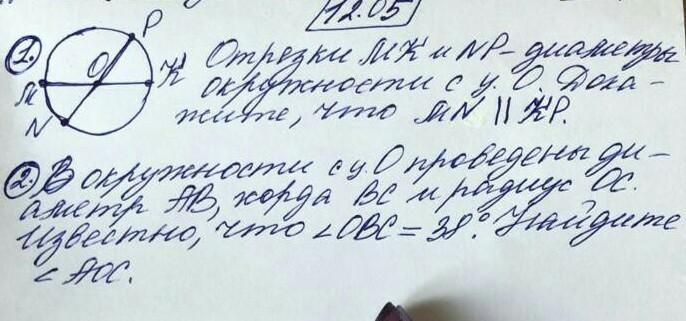 12.05
1. Отрезки MK и NP - диаметры
окружности с ц. O. Дока-
жите, что MN || KP.
P
O
K
M
N
2. В окружности с ц. O проведены ди-
аметр AB, хорда BC и радиус OC.
Известно, что ∠OBC = 38°. Найдите
∠AOC.